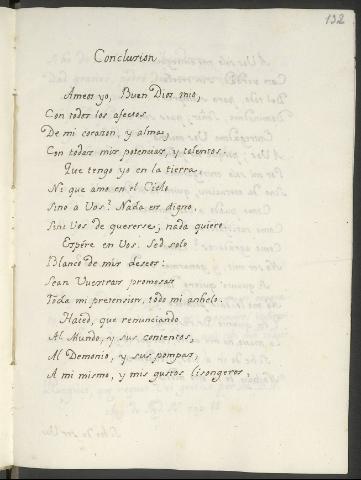 132
Conclusion
Ameos yo, Buen Dios mio,
Con todos los afectos
De mi corazon, y alma,
Con todas mis potencias, y talentos.
Que tengo yo en la tierra,
Ni que amo en el Cielo
Sino a Vos? Nada es digno,
Sino Vos de quererse; nada quiero.
Espére en Vos. Sed solo
Blanco de mis deseos:
Sean Vuestras promesas
Toda mi pretension, todo mi anhelo.
Haced, que renunciando
Al Mundo, y sus contentos,
Al Demonio, y sus pompas,
A mi mismo, y mis gustos lisongeros,